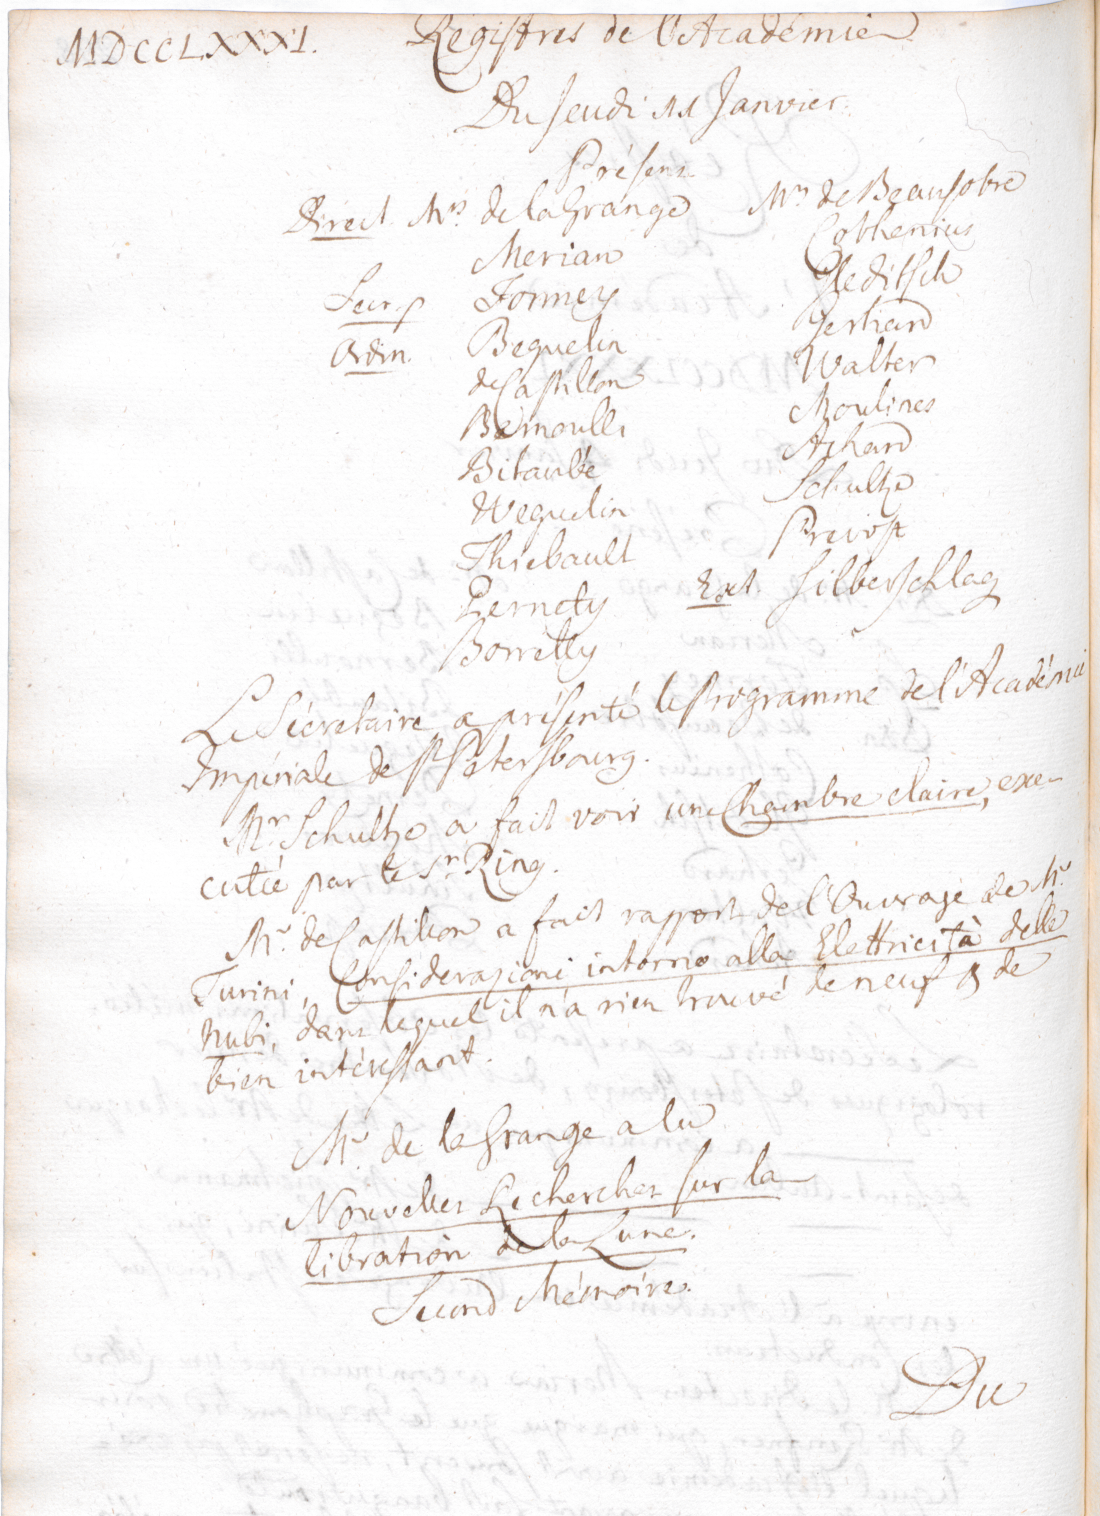 MDCCLXXXI. Registres de l'Académie
Du Jeudi 11 Janvier.
Présens
Direct. Mrs de la Grange
Merian
Secr. p Formey
Ordin. Beguelin
de Castillon
Bernoulli
Bitaubé
Weguelin
Thiebault
Pernety
Borrelly
Mrs de Beausobre
Cothenius
Gleditsch
Gerhard
Walter
Moulines
Achard
Schultze
Prevost
Ext Silberschlag
Le Sécretaire a présenté le Programme de l'Académie
Impériale de St Petersbourg.
Mr. Schultze a fait voir une Chambre claire, exe-
cutée par le Sr Ring.
Mr. de Castillon a fait rapport de l'Ouvrage de Mr.
Turini, Considerazioni intorno alla Elettricità delle
Nubi, dans lequel il n'a rien trouvé de neuf & de
bien intéressant.
Mr. de la Grange a lu
Nouvelles Recherches sur la
libration de la Lune.
Second Mémoire.
Du